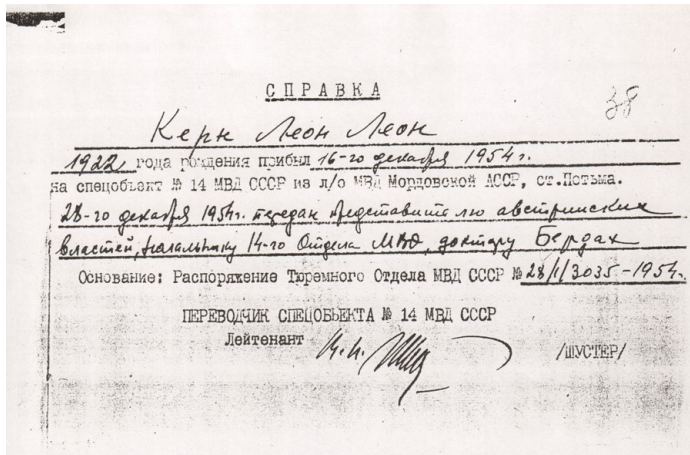 СПРАВКА
38
Керн Леон Леон
1922 года рождения прибыл 16-го декабря 1954г.
на спецобъект № 14 МВД СССР из л/о МВД Мордовской АССР, ст.Потьма.
28-го декабря 1954г. передан представителю австрийских
властей, начальнику 14-го Отдела МВД, доктору Бердах
Основание: Распоряжение Тюремного Отдела МВД СССР № 28/1/3035-1954г.
ПЕРЕВОДЧИК СПЕЦОБЪЕКТА № 14 МВД СССР
Лейтенант /ШУСТЕР/